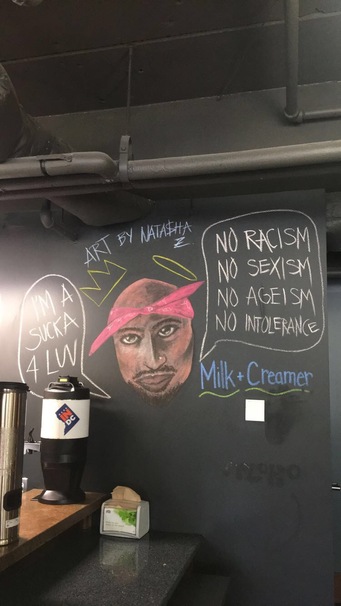 ART BY NATA$HA
Z
NO RACISM
NO SEXISM
NO AGEISM
NO INTOLERANCE
I'M A
SUCKA
4 LUV
Milk + Creamer
IN
DC